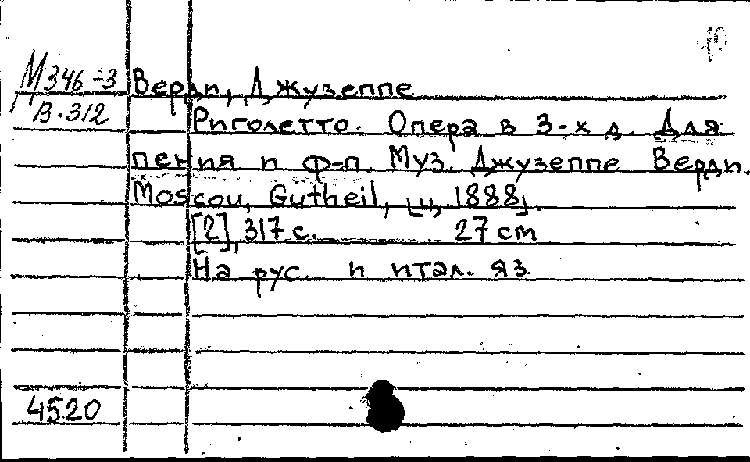 М346-3 Верди, Джузеппе
В.312
Риголетто. Опера в 3-х д. Для
пения и ф-п. Муз. Джузеппе Верди.
Moscou, Gutheil, [ц, 1888].
[2], 317 с. 27 cm
На рус. и итал. яз
4520